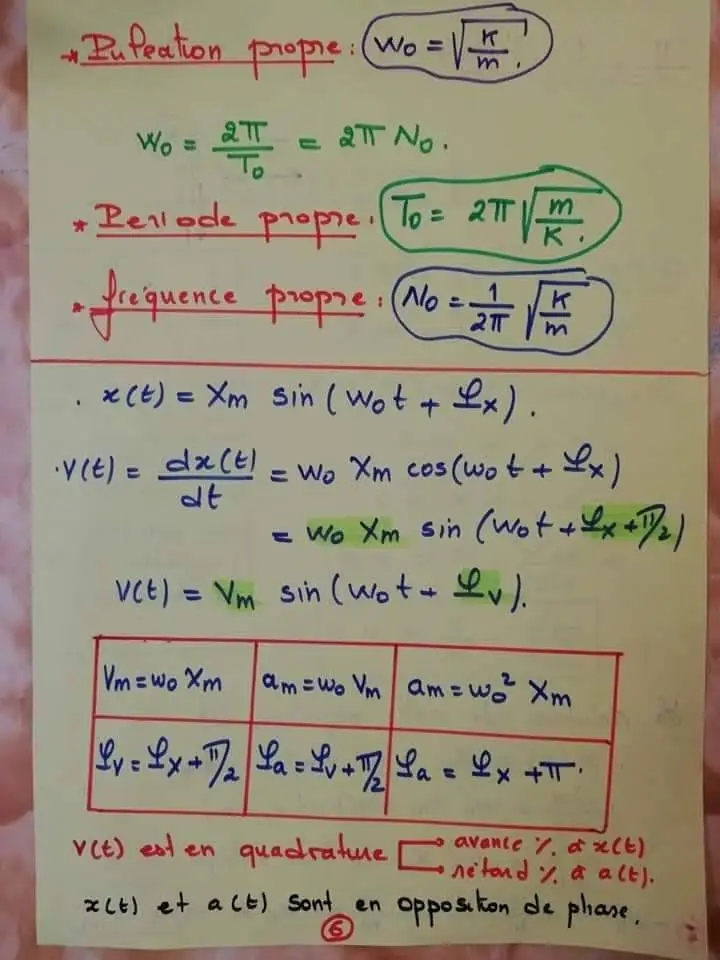 * Pulsation propre : W₀ = √(K/m).
W₀ = 2π/T₀ = 2π N₀.
* Periode propre : T₀ = 2π √(m/K).
* fréquence propre : N₀ = 1/2π √(K/m)
. x(t) = Xm sin (W₀t + φx).
. V(t) = dx(t)/dt = W₀ Xm cos(W₀t + φx)
= W₀ Xm sin (W₀t + φx + π/2)
V(t) = Vm sin (W₀t + φv).
Vm = W₀ Xm am = W₀ Vm am = W₀² Xm
φv = φx + π/2 φa = φv + π/2 φa = φx + π.
V(t) est en quadrature → avance %. à x(t)
→ rétard %. à a(t).
x(t) et a(t) sont en opposition de phase.
6